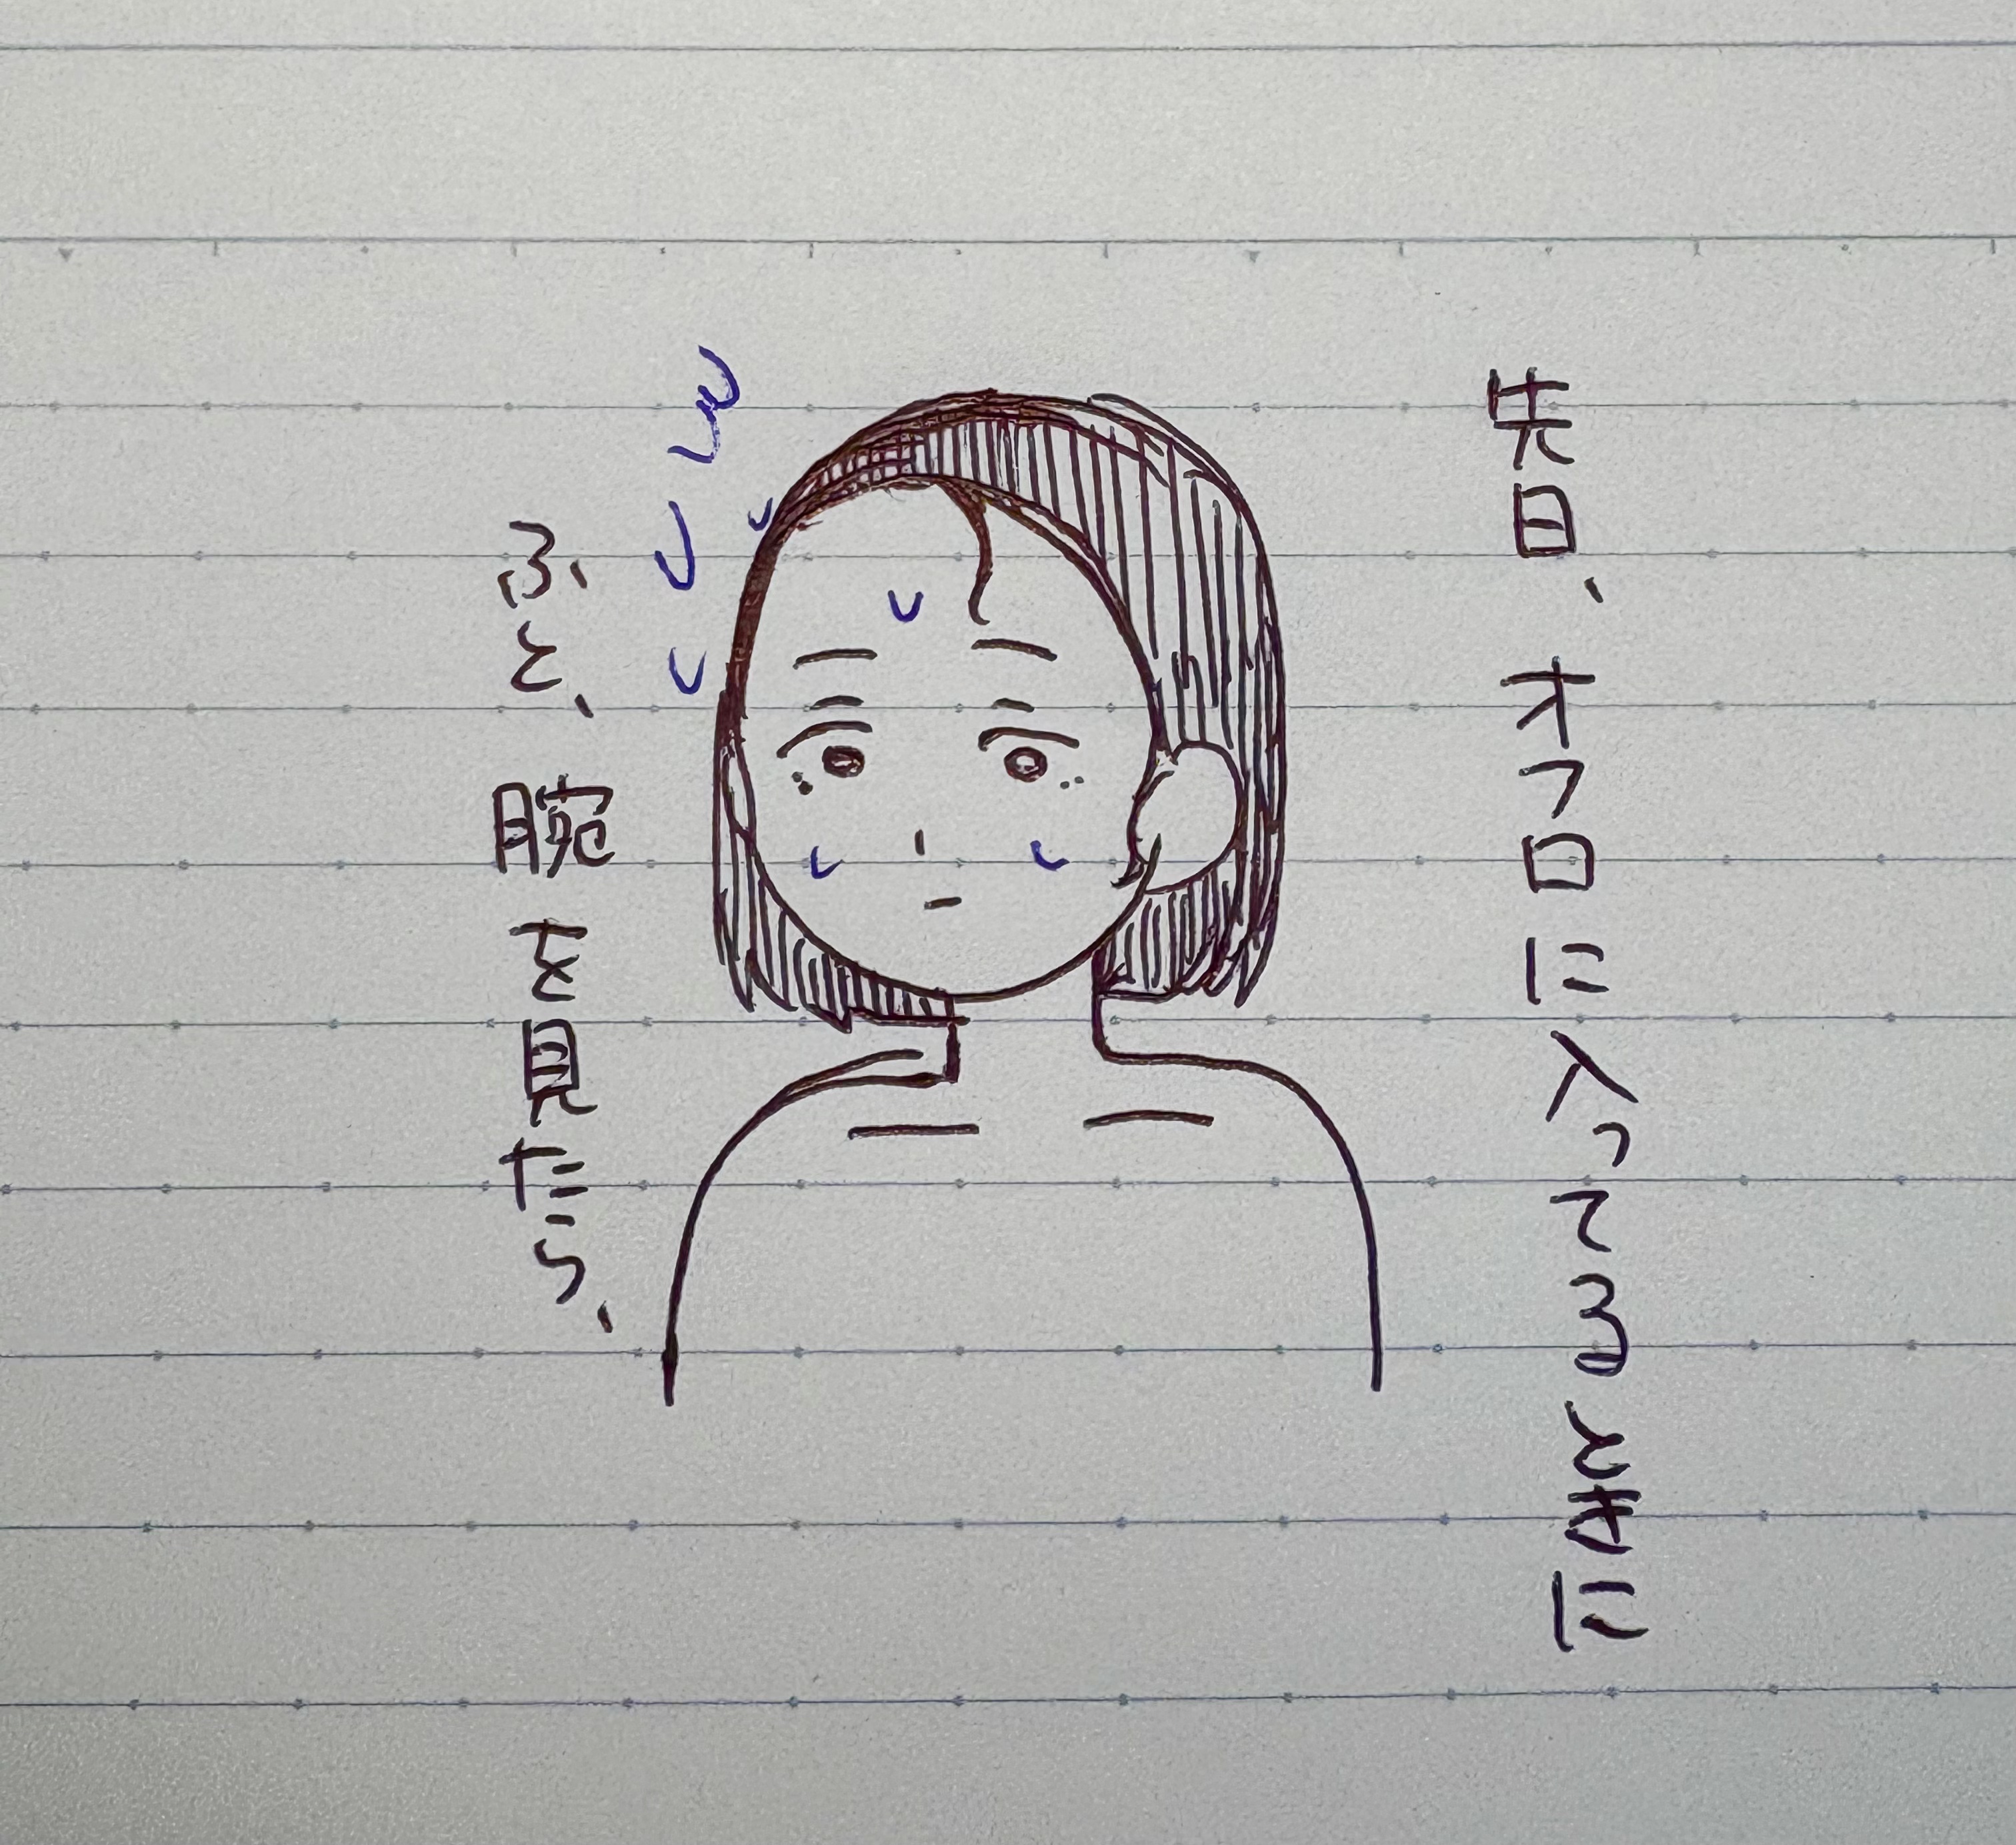 先日、オフロに入ってるときに
ふと、腕を見たら、